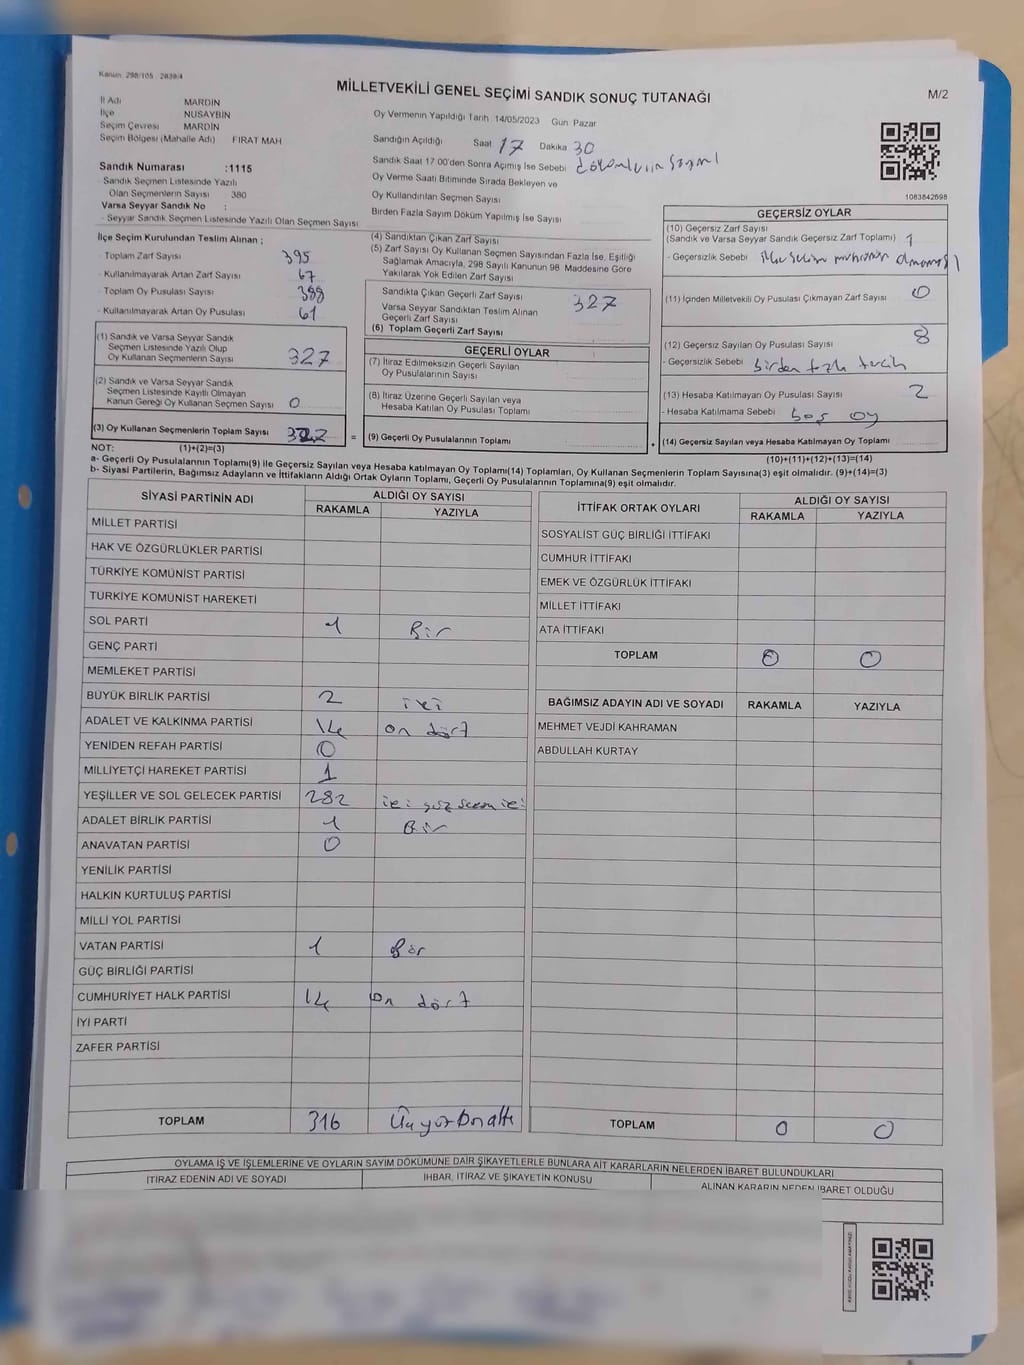 Kanun: 298/105 , 2839/4
MİLLETVEKİLİ GENEL SEÇİMİ SANDIK SONUÇ TUTANAĞI
M/2
İl Adı MARDİN
İlçe NUSAYBİN
Seçim Çevresi MARDİN
Seçim Bölgesi (Mahalle Adı) FIRAT MAH
Sandık Numarası :1115
Sandık Seçmen Listesinde Yazılı
Olan Seçmenlerin Sayısı : 380
Varsa Seyyar Sandık No :
- Seyyar Sandık Seçmen Listesinde Yazılı Olan Seçmen Sayısı
Oy Vermenin Yapıldığı Tarih :14/05/2023 Gün: Pazar
Sandığın Açıldığı Saat 17 Dakika 30
Sandık Saat 17:00'den Sonra Açılmış İse Sebebi
Oy Verme Saati Bitiminde Sırada Bekleyen ve
Oy Kullandırılan Seçmen Sayısı
Birden Fazla Sayım Döküm Yapılmış İse Sayısı
1083842698
İlçe Seçim Kurulundan Teslim Alınan ;
- Toplam Zarf Sayısı 395
- Kullanılmayarak Artan Zarf Sayısı 67
- Toplam Oy Pusulası Sayısı 388
- Kullanılmayarak Artan Oy Pusulası 61
(1) Sandık ve Varsa Seyyar Sandık
Seçmen Listesinde Yazılı Olup
Oy Kullanan Seçmenlerin Sayısı 327
(2) Sandık ve Varsa Seyyar Sandık
Seçmen Listesinde Kayıtlı Olmayan
Kanun Gereği Oy Kullanan Seçmen Sayısı 0
(3) Oy Kullanan Seçmenlerin Toplam Sayısı 327
NOT: (1)+(2)=(3)
(4) Sandıktan Çıkan Zarf Sayısı
(5) Zarf Sayısı Oy Kullanan Seçmen Sayısından Fazla İse, Eşitliği
Sağlamak Amacıyla, 298 Sayılı Kanunun 98. Maddesine Göre
Yakılarak Yok Edilen Zarf Sayısı
Sandıkta Çıkan Geçerli Zarf Sayısı 327
Varsa Seyyar Sandıktan Teslim Alınan
Geçerli Zarf Sayısı
(6) Toplam Geçerli Zarf Sayısı
GEÇERLİ OYLAR
(7) İtiraz Edilmeksizin Geçerli Sayılan
Oy Pusulalarının Sayısı
(8) İtiraz Üzerine Geçerli Sayılan veya
Hesaba Katılan Oy Pusulası Toplamı
= (9) Geçerli Oy Pusulalarının Toplamı
GEÇERSİZ OYLAR
(10) Geçersiz Zarf Sayısı
(Sandık ve Varsa Seyyar Sandık Geçersiz Zarf Toplamı) 1
- Geçersizlik Sebebi
(11) İçinden Milletvekili Oy Pusulası Çıkmayan Zarf Sayısı 0
(12) Geçersiz Sayılan Oy Pusulası Sayısı 8
- Geçersizlik Sebebi birden fazla tercih
(13) Hesaba Katılmayan Oy Pusulası Sayısı 2
- Hesaba Katılmama Sebebi boş oy
+ (14) Geçersiz Sayılan veya Hesaba Katılmayan Oy Toplamı
(10)+(11)+(12)+(13)=(14)
a- Geçerli Oy Pusulalarının Toplamı(9) ile Geçersiz Sayılan veya Hesaba katılmayan Oy Toplamı(14) Toplamları, Oy Kullanan Seçmenlerin Toplam Sayısına(3) eşit olmalıdır. (9)+(14)=(3)
b- Siyasi Partilerin, Bağımsız Adayların ve İttifakların Aldığı Ortak Oyların Toplamı, Geçerli Oy Pusulalarının Toplamına(9) eşit olmalıdır.
SİYASİ PARTİNİN ADI ALDIĞI OY SAYISI
RAKAMLA YAZIYLA
MİLLET PARTİSİ
HAK VE ÖZGÜRLÜKLER PARTİSİ
TÜRKİYE KOMÜNİST PARTİSİ
TÜRKİYE KOMÜNİST HAREKETİ
SOL PARTİ 1 Bir
GENÇ PARTİ
MEMLEKET PARTİSİ
BÜYÜK BİRLİK PARTİSİ 2 iki
ADALET VE KALKINMA PARTİSİ 14 on dört
YENİDEN REFAH PARTİSİ 0
MİLLİYETÇİ HAREKET PARTİSİ 1
YEŞİLLER VE SOL GELECEK PARTİSİ 282 iki yüz seksen iki
ADALET BİRLİK PARTİSİ 1 Bir
ANAVATAN PARTİSİ 0
YENİLİK PARTİSİ
HALKIN KURTULUŞ PARTİSİ
MİLLİ YOL PARTİSİ
VATAN PARTİSİ 1 Bir
GÜÇ BİRLİĞİ PARTİSİ
CUMHURİYET HALK PARTİSİ 14 on dört
İYİ PARTİ
ZAFER PARTİSİ
TOPLAM 316 Üç yüz on altı
İTTİFAK ORTAK OYLARI ALDIĞI OY SAYISI
RAKAMLA YAZIYLA
SOSYALİST GÜÇ BİRLİĞİ İTTİFAKI
CUMHUR İTTİFAKI
EMEK VE ÖZGÜRLÜK İTTİFAKI
MİLLET İTTİFAKI
ATA İTTİFAKI
TOPLAM 0 0
BAĞIMSIZ ADAYIN ADI VE SOYADI RAKAMLA YAZIYLA
MEHMET VEJDİ KAHRAMAN
ABDULLAH KURTAY
TOPLAM 0 0
OYLAMA İŞ VE İŞLEMLERİNE VE OYLARIN SAYIM DÖKÜMÜNE DAİR ŞİKAYETLERLE BUNLARA AİT KARARLARIN NELERDEN İBARET BULUNDUKLARI
İTİRAZ EDENİN ADI VE SOYADI İHBAR, İTİRAZ VE ŞİKAYETİN KONUSU ALINAN KARARIN NEDEN İBARET OLDUĞU